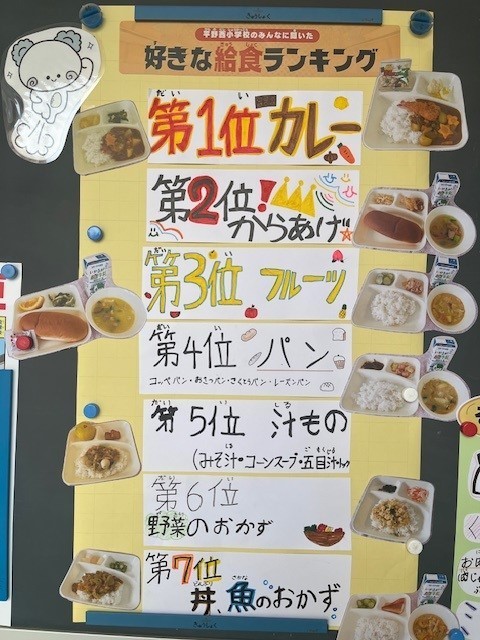 きゅうしょく
平野西小学校のみんなに聞いた
好きな給食ランキング
第1位 カレー
第2位! からあげ
第3位 フルーツ
第4位 パン
コッペパン・おさつパン・こくとうパン・レーズンパン
第5位 汁もの
(みそ汁・コーンスープ・五目汁
第6位
野菜のおかず
第7位
丼、魚のおかず
きゅうしょく